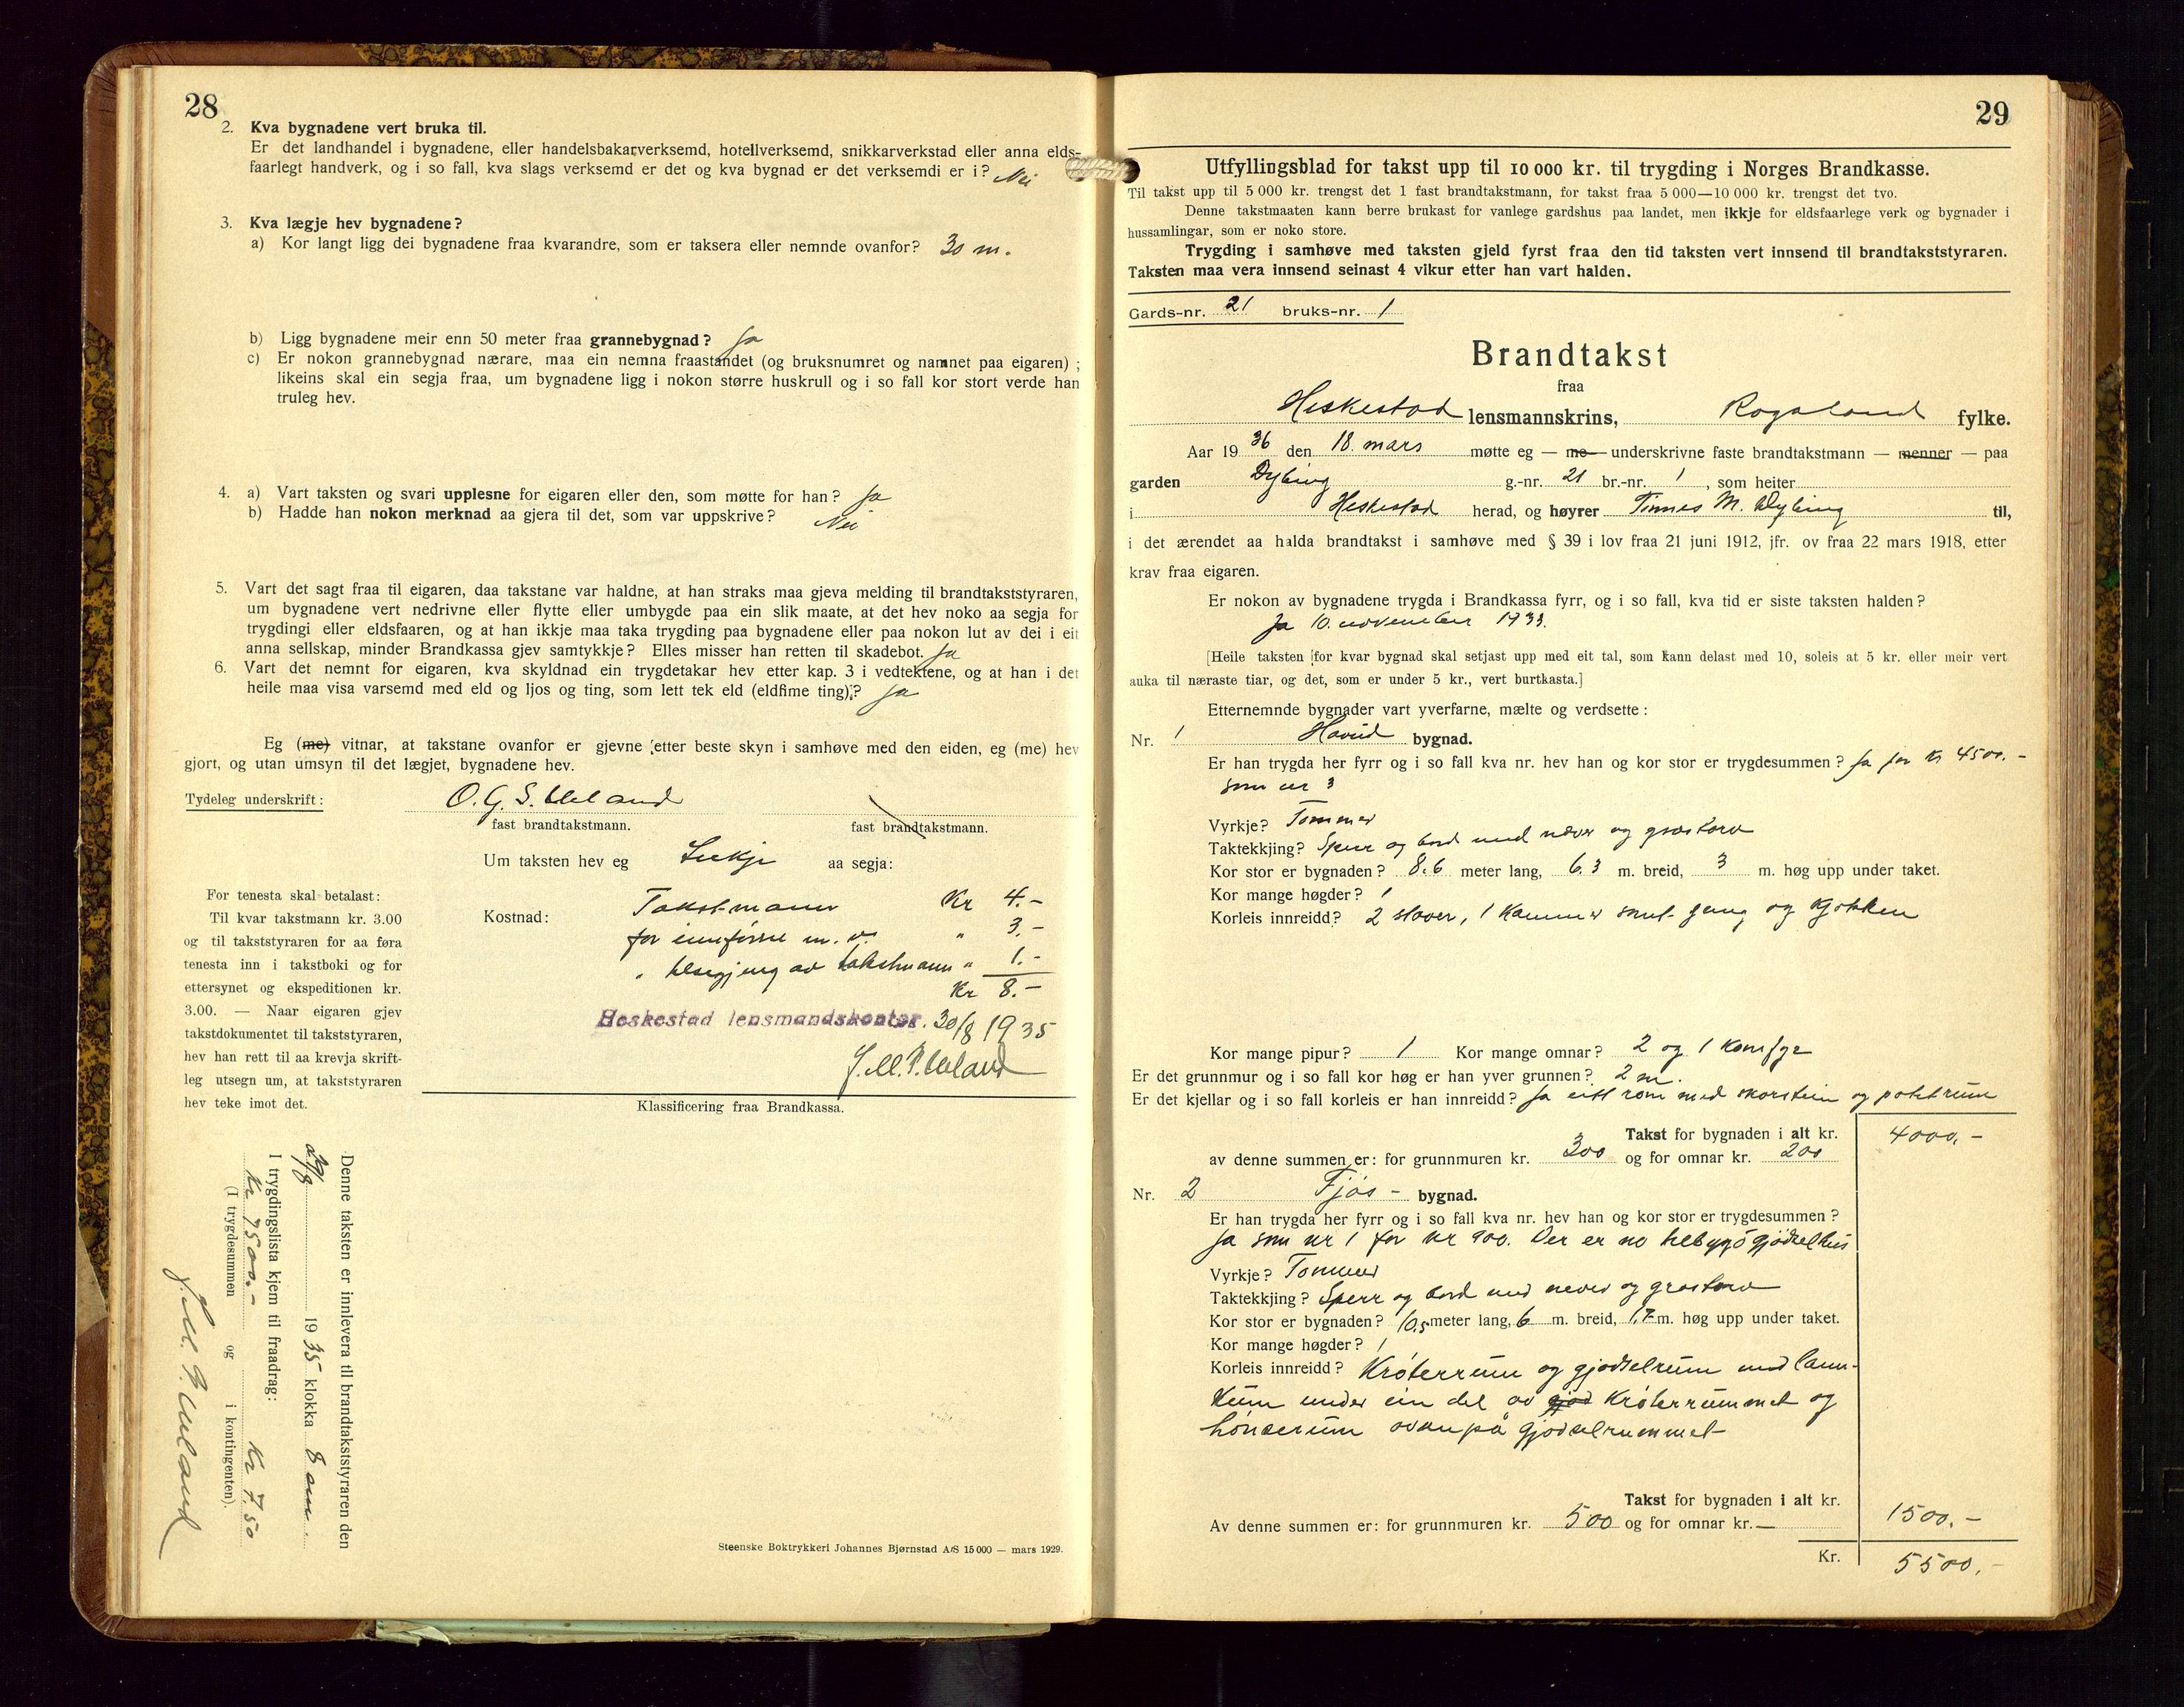 28
2. Kva bygnadene vert bruka til.
Er det landhandel i bygnadene, eller handelsbakarverksemd, hotellverksemd, snikkarverkstad eller anna elds-
faarlegt handverk, og i so fall, kva slags verksemd er det og kva bygnad er det verksemdi er i? Nei
3. Kva lægje hev bygnadene?
a) Kor langt ligg dei bygnadene fraa kvarandre, som er taksera eller nemnde ovanfor? 30 m.
b) Ligg bygnadene meir enn 50 meter fraa grannebygnad? Ja
c) Er nokon grannebygnad nærare, maa ein nemna fraastandet (og bruksnumret og namnet paa eigaren) ;
likeins skal ein segja fraa, um bygnadene ligg i nokon større huskrull og i so fall kor stort verde han
truleg hev.
4. a) Vart taksten og svari upplesne for eigaren eller den, som møtte for han? Ja
b) Hadde han nokon merknad aa gjera til det, som var uppskrive? Nei
5. Vart det sagt fraa til eigaren, daa takstane var haldne, at han straks maa gjeva melding til brandtakststyraren,
um bygnadene vert nedrivne eller flytte eller umbygde paa ein slik maate, at det hev noko aa segja for
trygdingi eller eldsfaaren, og at han ikkje maa taka trygding paa bygnadene eller paa nokon lut av dei i eit
anna sellskap, minder Brandkassa gjev samtykkje? Elles misser han retten til skadebot. Ja
6. Vart det nemnt for eigaren, kva skyldnad ein trygdetakar hev etter kap. 3 i vedtektene, og at han i det
heile maa visa varsemd med eld og ljos og ting, som lett tek eld (eldfime ting)? Ja
Eg (me) vitnar, at takstane ovanfor er gjevne etter beste skyn i samhøve med den eiden, eg (me) hev
gjort, og utan umsyn til det lægjet, bygnadene hev.
Tydeleg underskrift: O. G. S. Ueland
fast brandtakstmann. fast brandtakstmann.
Um taksten hev eg Inkje aa segja:
Kostnad: Takstmann Kr 4.-
for innførsle m. v. " 3.-
" tilsegjing av takstmann " 1.-
Kr 8.-
Heskestad lensmandskontor. 30/8 1935
J. M. P. Ueland
Klassificering fraa Brandkassa.
For tenesta skal betalast:
Til kvar takstmann kr. 3.00
og til takststyraren for aa føra
tenesta inn i takstboki og for
ettersynet og ekspeditionen kr.
3.00. — Naar eigaren gjev
takstdokumentet til takststyraren,
hev han rett til aa krevja skrift-
leg utsegn um, at takststyraren
hev teke imot det.
Denne taksten er innlevera til brandtakststyraren den
29/8 1935 klokka 8 am.
I trygdingslista kjem til fraadrag:
Kr 7500.- Kr 7,50
(I trygdesummen og i kontingenten).
J. M. P. Ueland
Steenske Boktrykkeri Johannes Bjørnstad A/S 15 000 — mars 1929.
29
Utfyllingsblad for takst upp til 10 000 kr. til trygding i Norges Brandkasse.
Til takst upp til 5 000 kr. trengst det 1 fast brandtakstmann, for takst fraa 5 000—10 000 kr. trengst det tvo.
Denne takstmaaten kann berre brukast for vanlege gardshus paa landet, men ikkje for eldsfaarlege verk og bygnader i
hussamlingar, som er noko store.
Trygding i samhøve med taksten gjeld fyrst fraa den tid taksten vert innsend til brandtakststyraren.
Taksten maa vera innsend seinast 4 vikur etter han vart halden.
Gards-nr. 21 bruks-nr. 1
Brandtakst
fraa
Heskestad lensmannskrins, Rogaland fylke.
Aar 1936 den 18. mars møtte eg — me — underskrivne faste brandtakstmann — menner — paa
garden Dybing g.-nr. 21 br.-nr. 1, som heiter
i Heskestad herad, og høyrer Tønnes M. Dybing til,
i det ærendet aa halda brandtakst i samhøve med § 39 i lov fraa 21 juni 1912, jfr. ov fraa 22 mars 1918, etter
krav fraa eigaren.
Er nokon av bygnadene trygda i Brandkassa fyrr, og i so fall, kva tid er siste taksten halden?
Ja 10. november 1933.
[Heile taksten for kvar bygnad skal setjast upp med eit tal, som kann delast med 10, soleis at 5 kr. eller meir vert
auka til næraste tiar, og det, som er under 5 kr., vert burtkasta.]
Etternemnde bygnader vart yverfarne, mælte og verdsette:
Nr. 1 Hovud bygnad.
Er han trygda her fyrr og i so fall kva nr. hev han og kor stor er trygdesummen? Ja for kr 4500.-
som nr 3
Vyrkje? Tømmer
Taktekkjing? Sperr og bord med never og grastorv
Kor stor er bygnaden? 8.6 meter lang, 6.3 m. breid, 3 m. høg upp under taket.
Kor mange høgder? 1
Korleis innreidd? 2 stover, 1 kammer samt gang og kjøkken
Kor mange pipur? 1 Kor mange omnar? 2 og 1 komfyr
Er det grunnmur og i so fall kor høg er han yver grunnen? 2 m.
Er det kjellar og i so fall korleis er han innreidd? Ja eitt rom med skorstein og potetrum
Takst for bygnaden i alt kr. 4000,-
av denne summen er: for grunnmuren kr. 300 og for omnar kr. 200
Nr. 2 Fjøs - bygnad.
Er han trygda her fyrr og i so fall kva nr. hev han og kor stor er trygdesummen?
Ja som nr 1 for kr 900. Der er no tilbygd gjødselhus
Vyrkje? Tømmer
Taktekkjing? Sperr og bord med never og grastorv
Kor stor er bygnaden? 10,5 meter lang, 6 m. breid, 1,7 m. høg upp under taket.
Kor mange høgder? 1
Korleis innreidd? Krøterrum og gjødselrum med lann-
kum under ein del av gjød krøterrummet og
hønserum ovanpå gjødselrummet
Takst for bygnaden i alt kr. 1500,-
Av denne summen er: for grunnmuren kr. 500 og for omnar kr. —
Kr. 5500,-